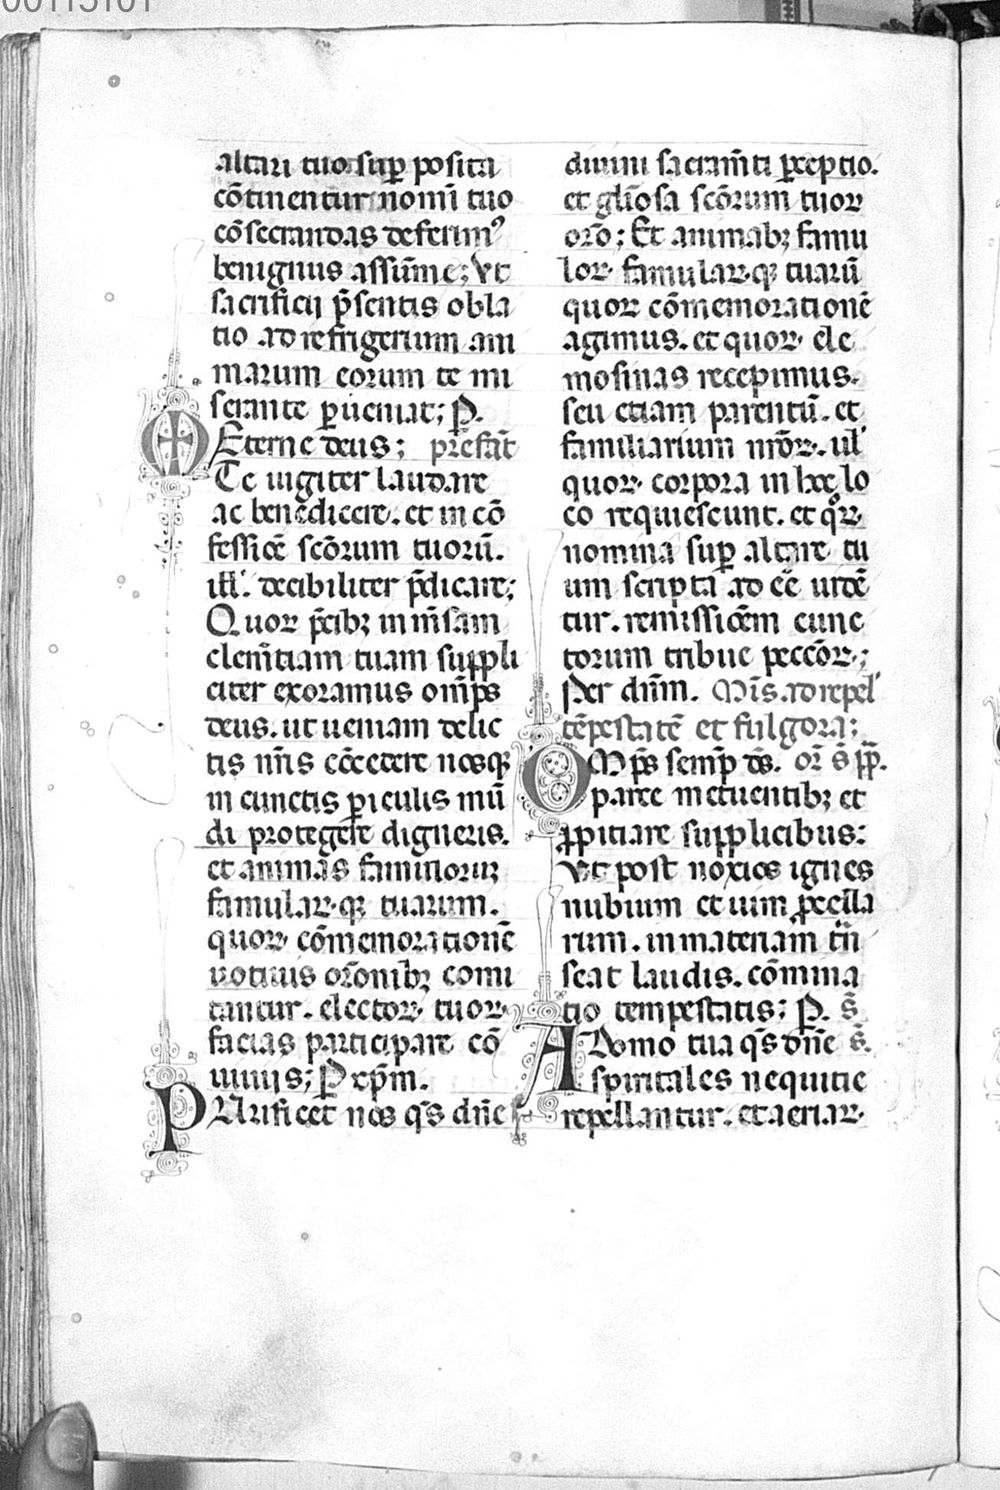 00113101
altari tuo sup̱ posita
cōtinentur nomī tuo
cōsecrandas deferimꝰ
benignus assūme; Vt
sacrificij p̄sentis obla
tio ad refrigerium ani
marum eorum te mi
serante ꝑueniat; P.
Eterne deus; prefat̄
Te iugiter laudare
ac benedicere. et in cō
fessiōe scōrum tuorū.
ill'. decibiliter p̄dicare;
Quoꝝ p̄cibꝫ inmēsam
clem̄tiam tuam suppli
citer exoramus om̄ps
deus. ut ueniam delic
tis nr̄is cōcedere nosqꝫ
in cunctis ꝑiculis mū
di protegere digneris.
et animas famuloruꝫ
famulaꝝ qꝫ tuarum.
quoꝝ cōmemorationē
uotiuis orōnibꝫ comi
tantur. electoꝝ tuoꝝ
facias participare cō
uiuijs; P xp̄m.
PUrificet nos q̄s dn̄e
diuini sacram̄ti ꝑceptio.
et gl̄iosa scōrum tuoꝝ
orō; Et animabꝫ famu
loꝝ famulaꝝ qꝫ tuarū
quoꝝ cōmemorationē
agimus. et quoꝝ ele
mosinas recepimus.
seu etiam parentū. et
familiarium nr̄oꝝ. ul'
quoꝝ corpora in hoc lo
co requiescunt. et qͦꝝ
nomina sup̱ altare tu
um scripta adēē uidē
tur. remissiōem cunc
torum tribue pecc̄oꝝ;
Per dn̄m. Mis̄. ad repel'
tēpestatē et fulgora;
OMp̄s semp̱ ds̄. or̄ s̄ pp̄.
parce metuentibꝫ et
ꝓpitiare supplicibus:
Vt post noxios ignes
nubium et uim ꝓcella
rum. in materiam trā
seat laudis. cōmina
tio tempestatis; P. s̄
A Domo tua q̄s dn̄e s̄.
spiritales nequitie
repellantur. et aeriaꝝ